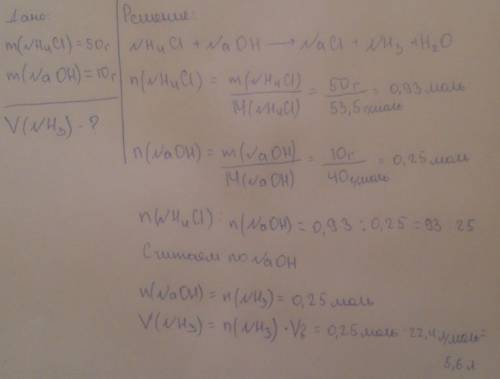 Дано:
m(NH4Cl)=50г
m(NaOH)=10г
V(NH3)-?
Решение:
NH4Cl + NaOH → NaCl + NH3 + H2O
n(NH4Cl) = m(NH4Cl)/M(NH4Cl) = 50г/53,5г/моль = 0,93 моль
n(NaOH) = m(NaOH)/M(NaOH) = 10г/40г/моль = 0,25 моль
n(NH4Cl) : n(NaOH) = 0,93 : 0,25 = 93 : 25
Считаем по NaOH
n(NaOH) = n(NH3) = 0,25 моль
V(NH3) = n(NH3) · V = 0,25 моль · 22,4 л/моль =
5,6 л